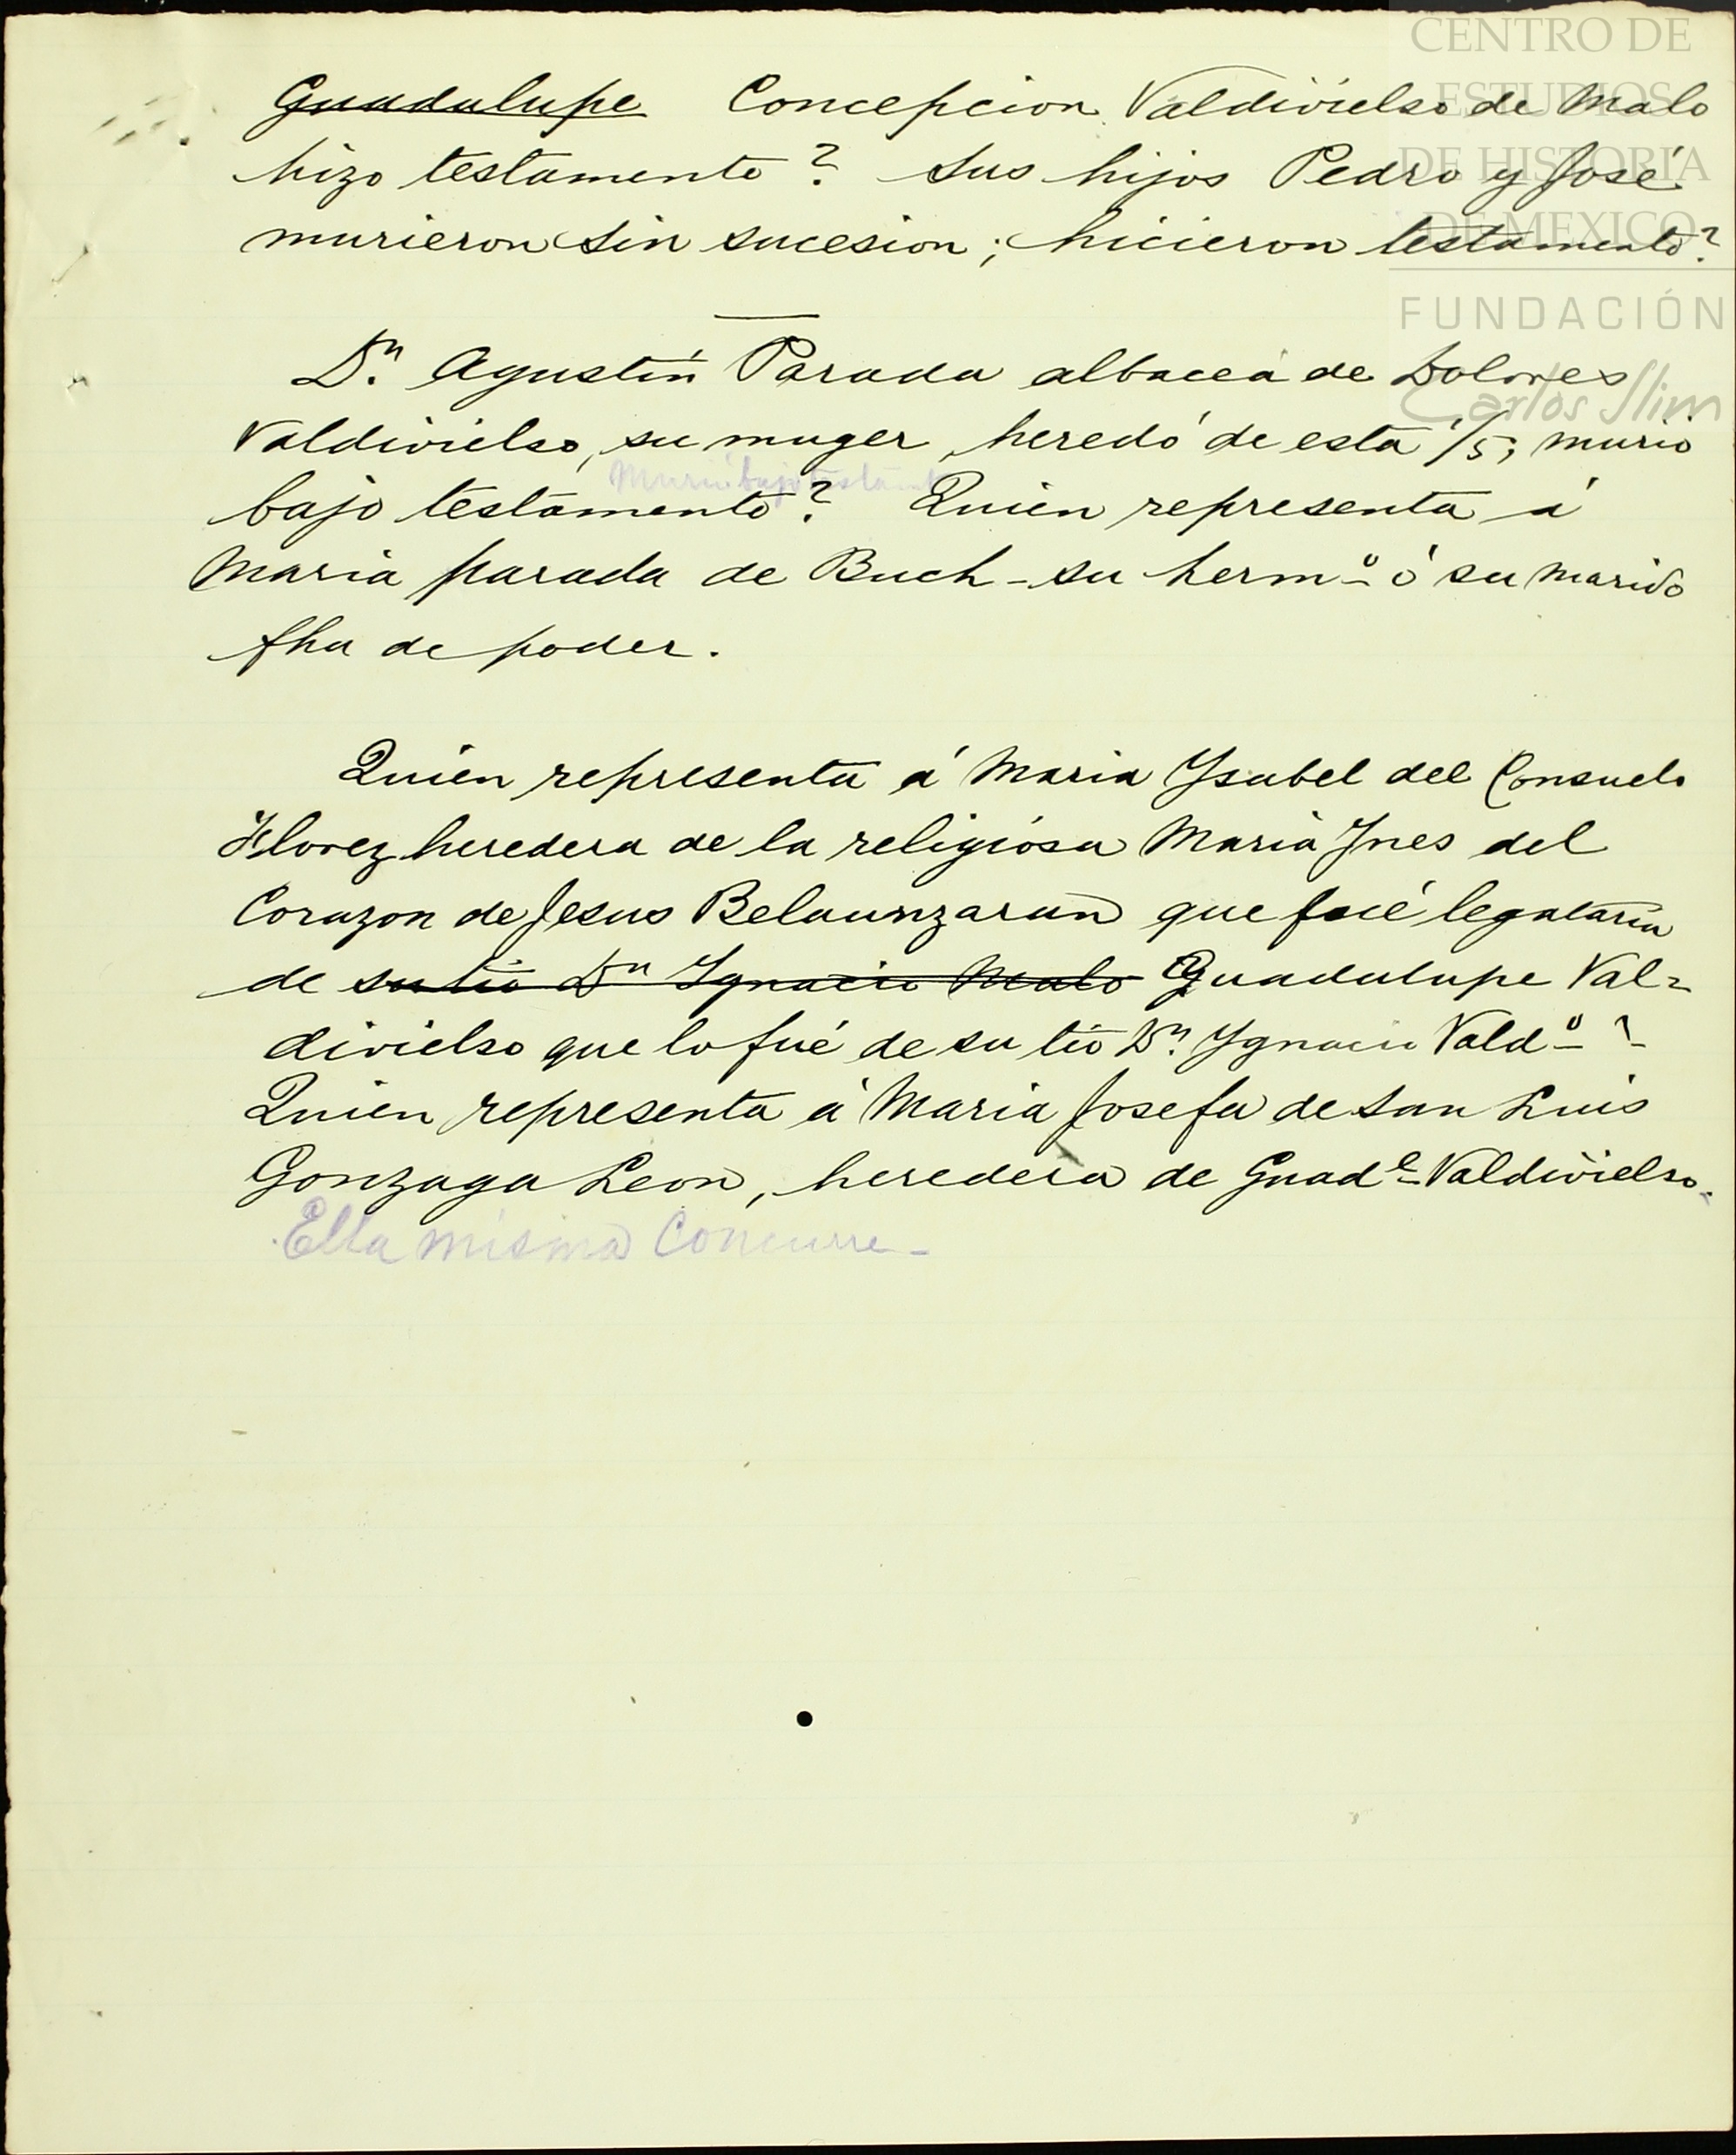 CENTRO DE
ESTUDIOS
DE HISTORIA
DE MEXICO
FUNDACIÓN
Carlos Slim
Guadalupe Concepcion Valdivielso de Malo
hizo testamento? Sus hijos Pedro y José
murieron sin sucesion; hicieron testamento?
Dn. Agustin Parada albacea de Dolores
Valdivielso, su muger, heredó de esta 1/5; murió
Murió bajo testamto
bajo testamento? Quien representa á
Maria Parada de Buch - su hermo ó su marido
fha de poder.
Quien representa á Maria Ysabel del Consuelo
Florez heredera de la religiosa Maria Ynes del
Corazon de Jesus Belaunzaran que fué legataria
de su tio Dn Ygnacio Malo Guadalupe Val=
divielso que lo fué de su tio Dn. Ygnacio Valdo ?
Quien representa á Maria Josefa de San Luis
Gonzaga Leon, heredera de Guade Valdivielso.
Ella misma concurre -